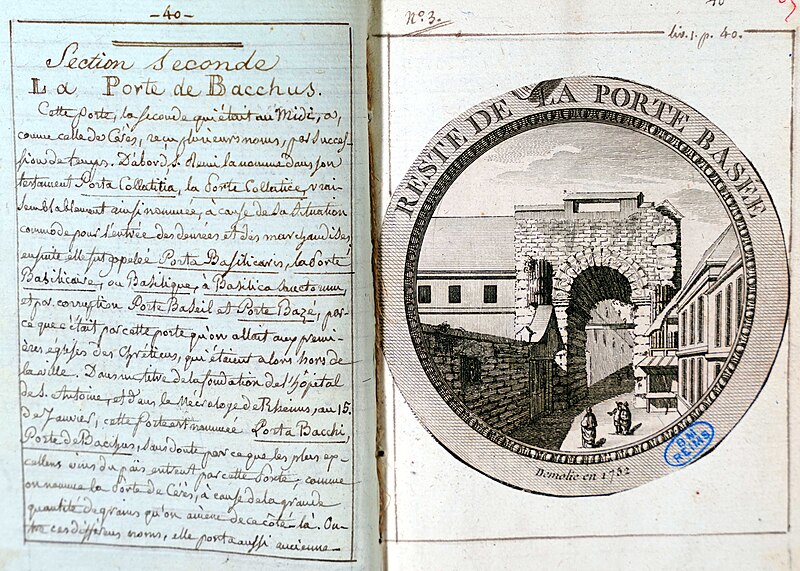 -40-
Section seconde
La Porte de Bacchus.
Cette porte, la seconde qui était au Midi, a,
comme celle de Cérès, reçu plusieurs noms, par succes-
sion de temps. D'abord, S. Remi la nomme dans son
testament Porta Collatitia, la Porte Collatice, vrai-
semblablement ainsi nommée, à cause de sa situation
commode pour l'entrée des denrées et des marchandises,
ensuite elle fut appelée Porta Basilicaris, la Porte
Basilicaire, ou Basilique, à Basilica
et par corruption Porte Baseil et Porte Baze, par-
ce que c'était par cette porte qu'on allait aux premi-
ères eglises des Chrétiens, qui étaient alors hors de
la ville. Dans un titre de la fondation de l'hôpital
de S. Antoine, et dans le Necrologe de Rheims, au 15.
de Janvier, cette Porte est nommée Porta Bacchi,
Porte de Bacchus, sans doute parce que les plus ex-
cellens vins du païs entrent par cette Porte, comme
on nomme la Porte de Cérès, à cause de la grande
quantité de grains qu'on amène de ce côté-là. Ou-
tre ces différens noms, elle porta aussi ancienne-
N.o 3.
40
liv. 1. p. 40.
RESTE DE LA PORTE BASEE
Demolie en 1752
B.M
REIMS